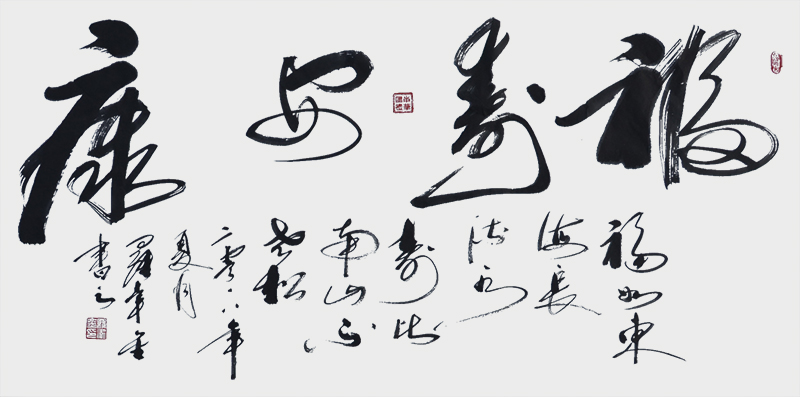 福寿安康
福如東
海長
流水
寿比
南山不
老松
二零一八年
夏月
羅
書之